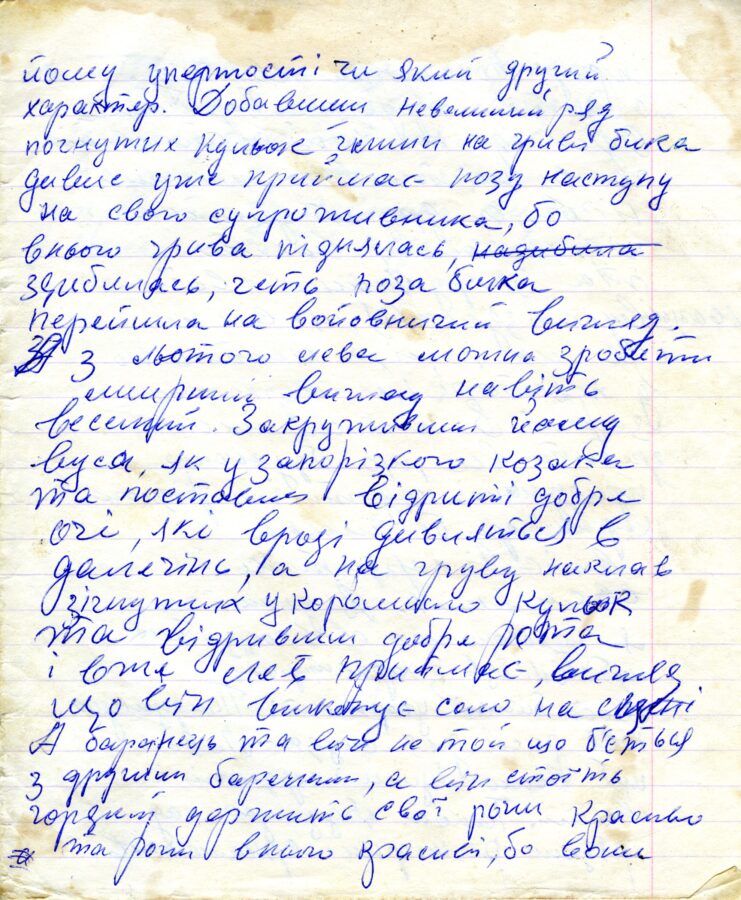 йому упертості чи який другий
характер. Добавивши невеличкий ряд
погнутих кульок на гриві бика
дивис уже приймає позу наступу
на свого супротивника, бо
внього грива піднялась, надибила
здибилась, четь поза бика
перейшла на войовничий вигляд.
З лютого лева можна зробити
мирний вигляд навіть
веселий. Закруживши йому
вуса, як у запорізкого козака
та поставив відриті добре
очі, які вроді дивляться в
далечінь, а на груву наклав
зігнутих у коромисло кульок
та відривши добре рота
і вже лев приймає, вигляд
що він виконує соло на сцені
А баранець та він не той що бється
з другими баранами, а він стоїть
гордий держить свої роги красиво
та роги внього красиві, бо вони